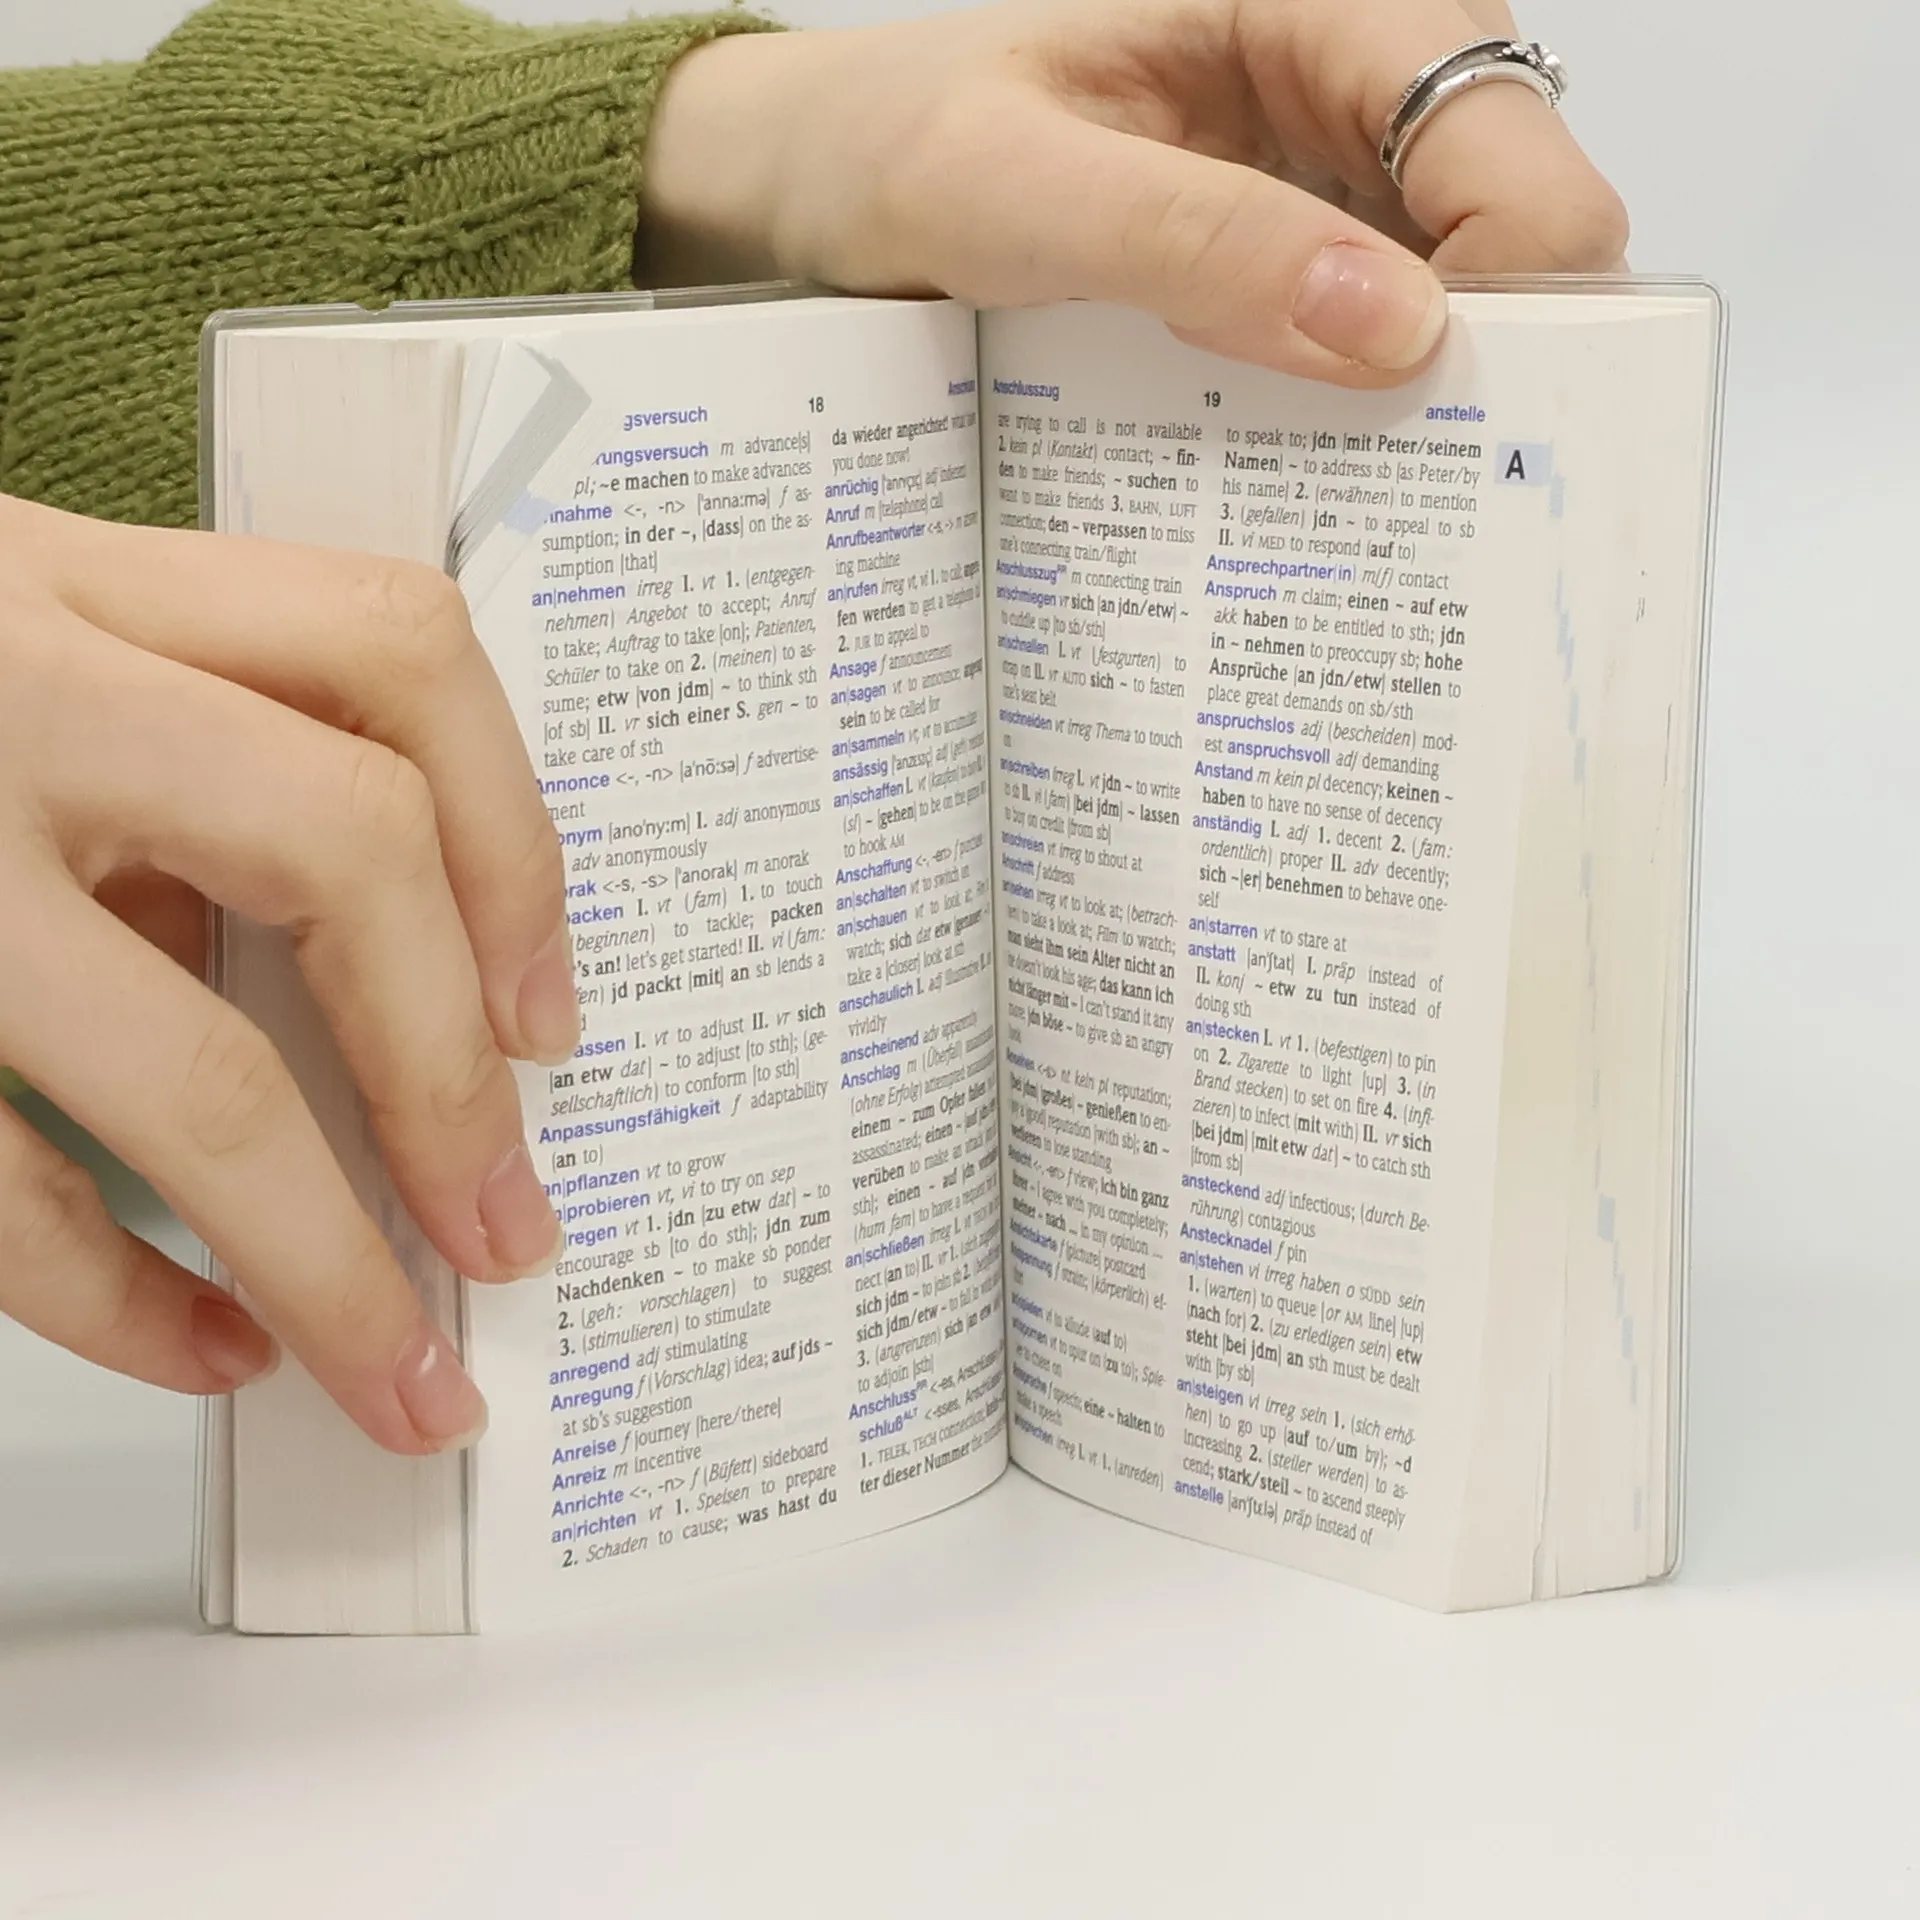 gsversuch
18
rungsversuch m advance[s]
pl; ~e machen to make advances
nahme <-, -n> ['anna:mə] f as-
sumption; in der ~, [dass] on the as-
sumption [that]
an|nehmen irreg I. vt 1. (entgegen-
nehmen) Angebot to accept; Anruf
to take; Auftrag to take [on]; Patienten,
Schüler to take on 2. (meinen) to as-
sume; etw [von jdm] ~ to think sth
[of sb] II. vr sich einer S. gen ~ to
take care of sth
Annonce <-, -n> [a'nõ:sə] f advertise-
ment
onym [ano'ny:m] I. adj anonymous
adv anonymously
rak <-s, -s> ['anorak] m anorak
acken I. vt (fam) 1. to touch
(beginnen) to tackle; packen
's an! let's get started! II. vi (fam:
fen) jd packt [mit] an sb lends a
d
assen I. vt to adjust II. vr sich
[an etw dat] ~ to adjust [to sth]; (ge-
sellschaftlich) to conform [to sth]
Anpassungsfähigkeit f adaptability
(an to)
an|pflanzen vt to grow
|probieren vt, vi to try on sep
|regen vt 1. jdn [zu etw dat] ~ to
encourage sb [to do sth]; jdn zum
Nachdenken ~ to make sb ponder
2. (geh: vorschlagen) to suggest
3. (stimulieren) to stimulate
anregend adj stimulating
Anregung f (Vorschlag) idea; auf jds ~
at sb's suggestion
Anreise f journey [here/there]
Anreiz m incentive
Anrichte <-, -n> f (Büfett) sideboard
an|richten vt 1. Speisen to prepare
2. Schaden to cause; was hast du
da wieder angerichtet!
you done now!
anrüchig adj
Anruf m [telephone] call
Anrufbeantworter <-s, -> m
ing machine
an|rufen irreg vt, vi 1. to call;
fen werden to get a telephone
2. JUR to appeal to
Ansage f announcement
an|sagen vt to announce;
sein to be called for
an|sammeln vr, vt to accumulate
ansässig adj
an|schaffen I. vt (kaufen) to
(sl) ~ [gehen] to be on the game
to hook AM
Anschaffung <-, -en> f
an|schalten vt to switch on
an|schauen vt to look at;
watch; sich dat etw [genauer]
take a [closer] look at sth
anschaulich I. adj illustrative
vividly
anscheinend adv apparently
Anschlag m (Überfall)
(ohne Erfolg) attempted
einem ~ zum Opfer fallen
assassinated; einen ~ [auf
verüben to make an attack
sth]; einen ~ auf jdn
(hum fam) to have a request
an|schließen irreg I. vt
nect (an to) II. vr 1.
sich jdm ~ to join sb 2.
sich jdm/etw ~ to fall in with
3. (angrenzen) sich [an etw
to adjoin [sth]
Anschluss <-es, Anschlüsse>
schluß <-sses, Anschlüsse>
1. TELEK, TECH connection;
ter dieser Nummer the number
Anschlusszug
19
anstelle
are trying to call is not available
2. kein pl (Kontakt) contact; ~ fin-
den to make friends; ~ suchen to
want to make friends 3. BAHN, LUFT
connection; den ~ verpassen to miss
one's connecting train/flight
Anschlusszug m connecting train
an|schmiegen vr sich [an jdn/etw] ~
to cuddle up [to sb/sth]
an|schnallen I. vt (festgurten) to
strap on II. vr AUTO sich ~ to fasten
one's seat belt
an|schneiden vt irreg Thema to touch
on
an|schreiben irreg I. vt jdn ~ to write
to sb II. vi (fam) [bei jdm] ~ lassen
to buy on credit [from sb]
an|schreien vt irreg to shout at
Anschrift f address
an|sehen irreg vt to look at; (betrach-
ten) to take a look at; Film to watch;
man sieht ihm sein Alter nicht an
he doesn't look his age; das kann ich
nicht länger mit ~ I can't stand it any
more; jdn böse ~ to give sb an angry
look
Ansehen <-s> nt kein pl reputation;
[bei jdm] [großes] ~ genießen to en-
joy a [good] reputation [with sb]; an ~
verlieren to lose standing
Ansicht <-, -en> f view; ich bin ganz
Ihrer ~ I agree with you completely;
meiner ~ nach ... in my opinion ...
Ansichtskarte f [picture] postcard
Anspannung f strain; (körperlich) ef-
fort
an|spielen vi to allude (auf to)
an|spornen vt to spur on (zu to); Spie-
ler to cheer on
Ansprache f speech; eine ~ halten to
make a speech
an|sprechen irreg I. vt 1. (anreden)
to speak to; jdn [mit Peter/seinem
Namen] ~ to address sb [as Peter/by
his name] 2. (erwähnen) to mention
3. (gefallen) jdn ~ to appeal to sb
II. vi MED to respond (auf to)
Ansprechpartner(in) m(f) contact
Anspruch m claim; einen ~ auf etw
akk haben to be entitled to sth; jdn
in ~ nehmen to preoccupy sb; hohe
Ansprüche [an jdn/etw] stellen to
place great demands on sb/sth
anspruchslos adj (bescheiden) mod-
est anspruchsvoll adj demanding
Anstand m kein pl decency; keinen ~
haben to have no sense of decency
anständig I. adj 1. decent 2. (fam:
ordentlich) proper II. adv decently;
sich ~[er] benehmen to behave one-
self
an|starren vt to stare at
anstatt [an'ʃtat] I. präp instead of
II. konj ~ etw zu tun instead of
doing sth
an|stecken I. vt 1. (befestigen) to pin
on 2. Zigarette to light [up] 3. (in
Brand stecken) to set on fire 4. (infi-
zieren) to infect (mit with) II. vr sich
[bei jdm] [mit etw dat] ~ to catch sth
[from sb]
ansteckend adj infectious; (durch Be-
rührung) contagious
Anstecknadel f pin
an|stehen vi irreg haben o SÜDD sein
1. (warten) to queue [or AM line] [up]
(nach for) 2. (zu erledigen sein) etw
steht [bei jdm] an sth must be dealt
with [by sb]
an|steigen vi irreg sein 1. (sich erhö-
hen) to go up (auf to/um by); ~d
increasing 2. (steiler werden) to as-
cend; stark/steil ~ to ascend steeply
anstelle [an'ʃtɛlə] präp instead of
A